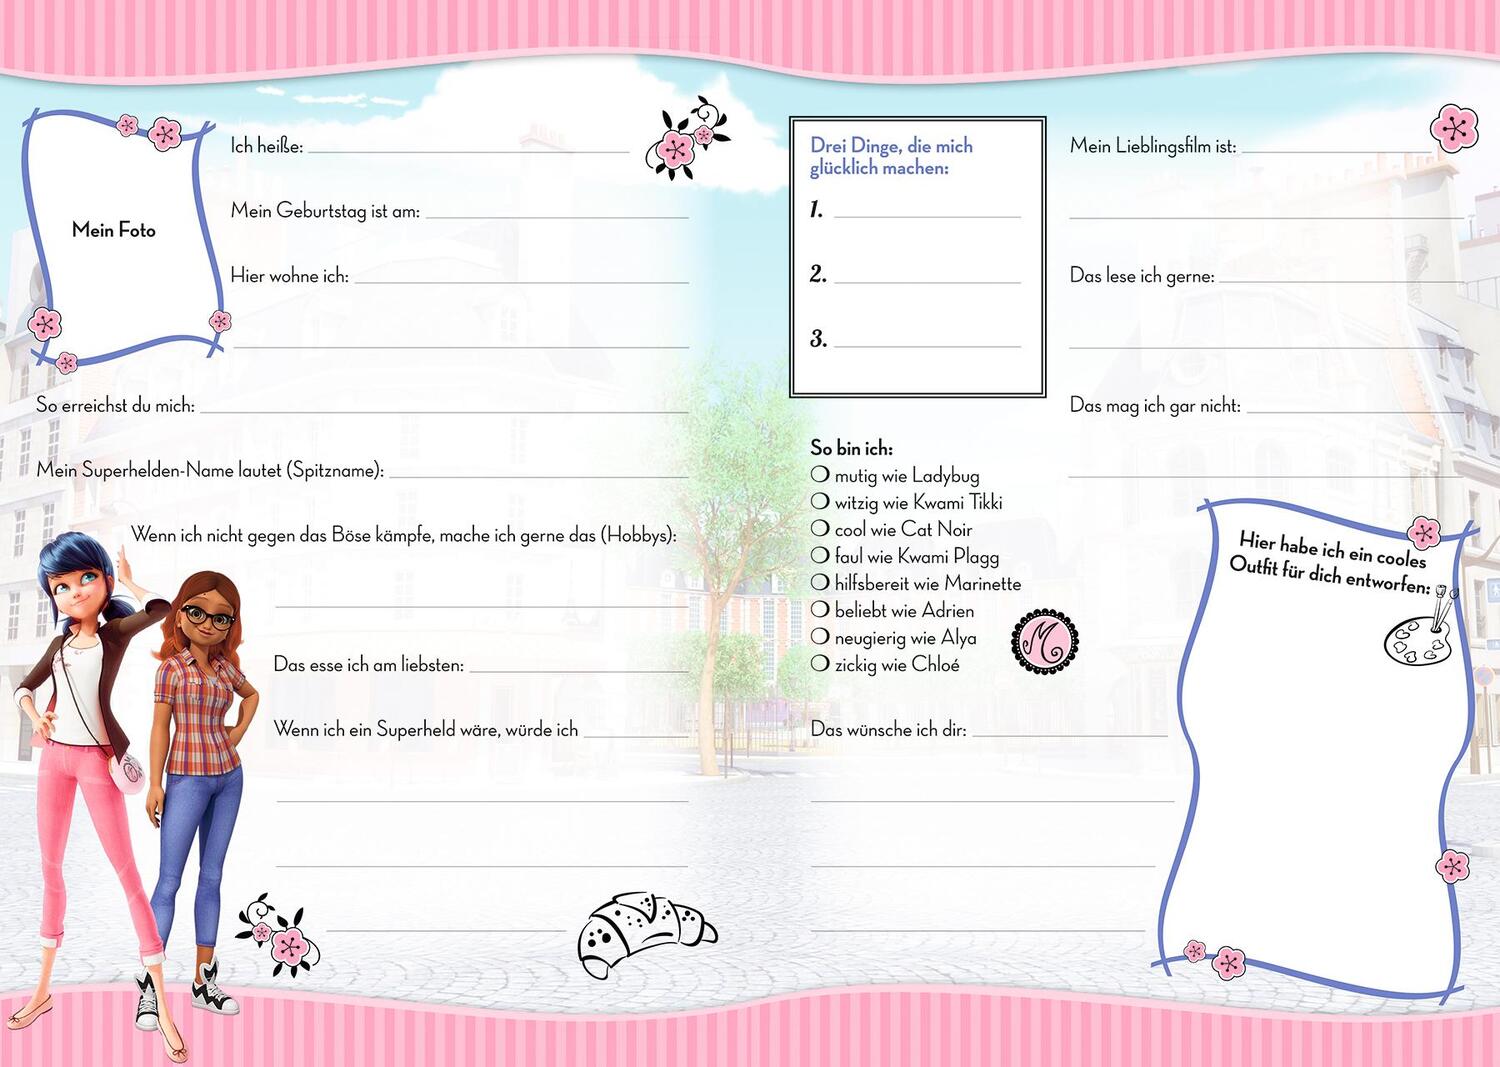 Mein Foto
Ich heiße:
Mein Geburtstag ist am:
Hier wohne ich:
So erreichst du mich:
Mein Superhelden-Name lautet (Spitzname):
Wenn ich nicht gegen das Böse kämpfe, mache ich gerne das (Hobbys):
Das esse ich am liebsten:
Wenn ich ein Superheld wäre, würde ich
Drei Dinge, die mich
glücklich machen:
1.
2.
3.
So bin ich:
mutig wie Ladybug
witzig wie Kwami Tikki
cool wie Cat Noir
faul wie Kwami Plagg
hilfsbereit wie Marinette
beliebt wie Adrien
neugierig wie Alya
zickig wie Chloé
M
Das wünsche ich dir:
Mein Lieblingsfilm ist:
Das lese ich gerne:
Das mag ich gar nicht:
Hier habe ich ein cooles
Outfit für dich entworfen: